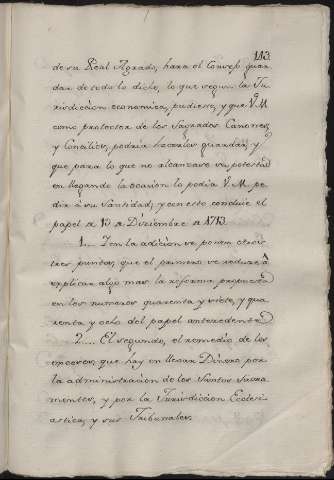 113.
de su Real Agrado, hara el Consejo guar
dar de todo lo dicho, lo que segun la Ju
risdiccion economica, pudiese, y que V. M.
como protector de los Sagrados Canones,
y Concilios, podria hacerlos guardar, y
que para lo que no alcanzase su potestad
en llegando la ocasion lo podia V. M. pe
dir à su Santidad; y con esto concluie el
papel de 15 de Diziembre de 1713.
1.... Y en la adicion se ponen otros
tres puntos, que el primero se reduce à
explicar algo mas la reforma propuesta
en los numeros quarenta y siete, y qua
renta y ocho del papel antecedente.
2.... El segundo, el remedio de los
excesos que hay en llevar Dinero por
la administracion de los Santos Sacra
mentos, y por la Jurisdiccion Eclesi
astica, y sus Tribunales.